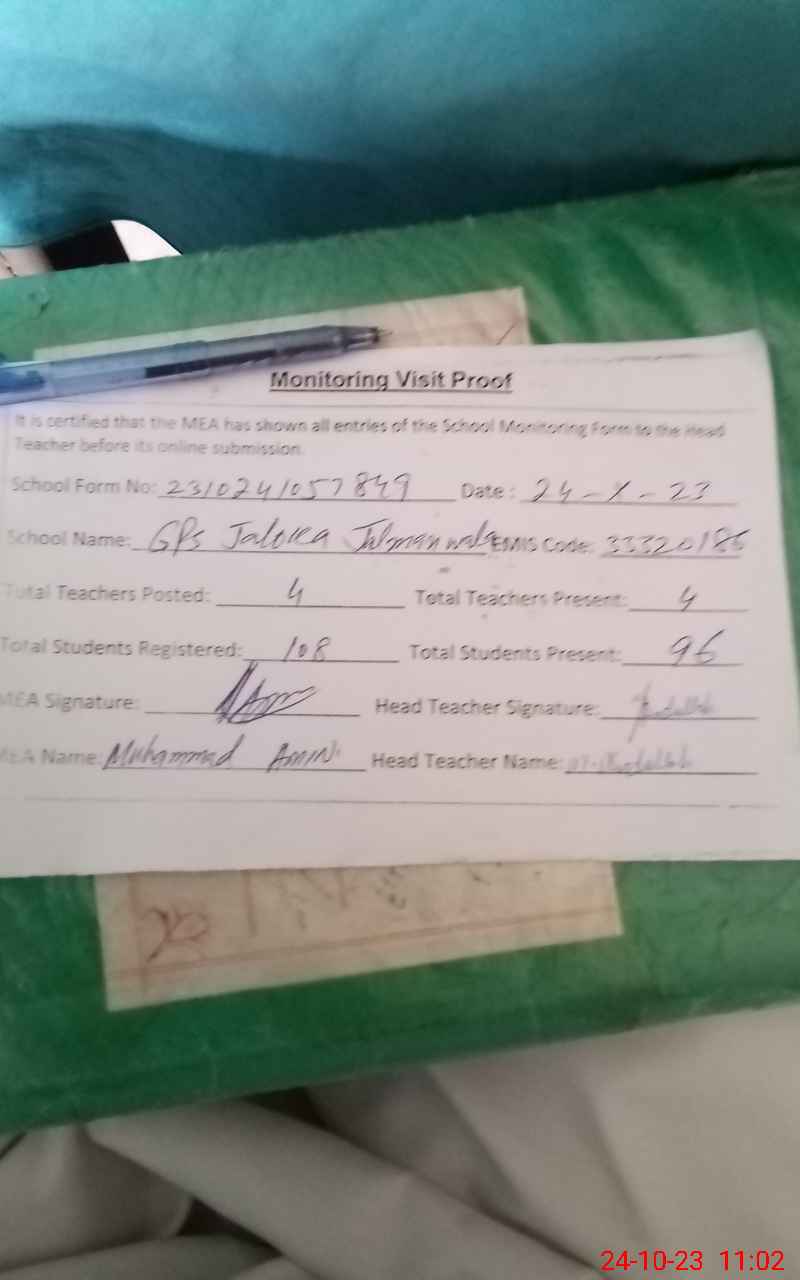 Monitoring Visit Proof
It is certified that the MEA has shown all entries of the School Monitoring Form to the Head
Teacher before its online submission.
School Form No: 2310241057849 Date: 24-X-23
School Name: GPs Jaloka EMIS Code: 33320186
Total Teachers Posted: 4 Total Teachers Present: 4
Total Students Registered: 108 Total Students Present: 96
MEA Signature: Head Teacher Signature:
MEA Name: Muhammad Amin Head Teacher Name:
24-10-23 11:02